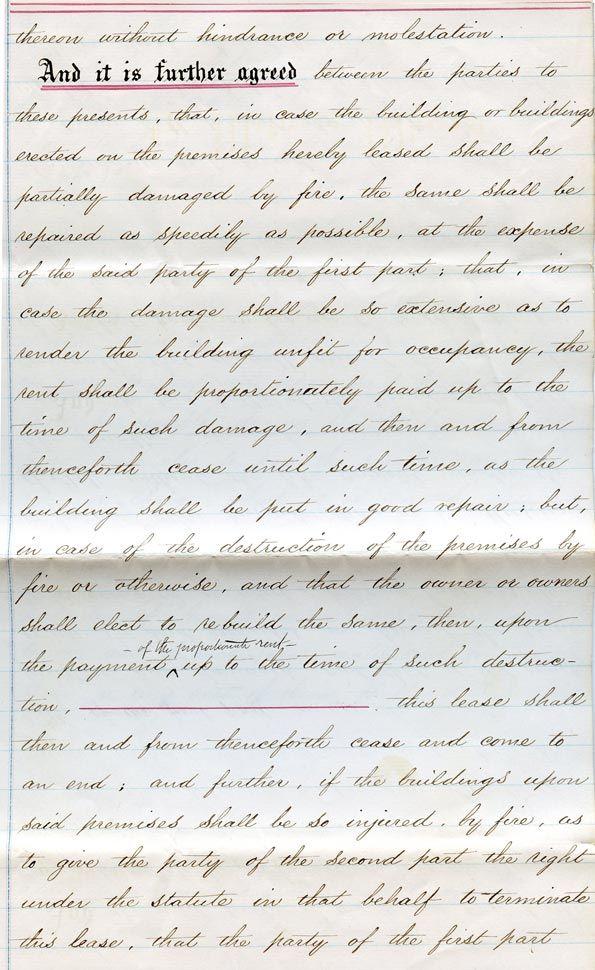 thereon without hindrance or molestation.
And it is further agreed between the parties to
these presents, that, in case the building or buildings
erected on the premises hereby leased shall be
partially damaged by fire, the same shall be
repaired as speedily as possible, at the expense
of the said party of the first part; that, in
case the damage shall be so extensive as to
render the building unfit for occupancy, the
rent shall be proportionately paid up to the
time of such damage, and then and from
thenceforth cease until such time, as the
building shall be put in good repair; but,
in case of the destruction of the premises by
fire or otherwise, and that the owner or owners
shall elect to rebuild the same, then, upon
- of the proportionate rent -
the payment ^ up to the time of such destruc-
tion, this lease shall
then and from thenceforth cease and come to
an end; and further, if the buildings upon
said premises shall be so injured, by fire, as
to give the party of the second part the right
under the statute in that behalf to terminate
this lease, that the party of the first part